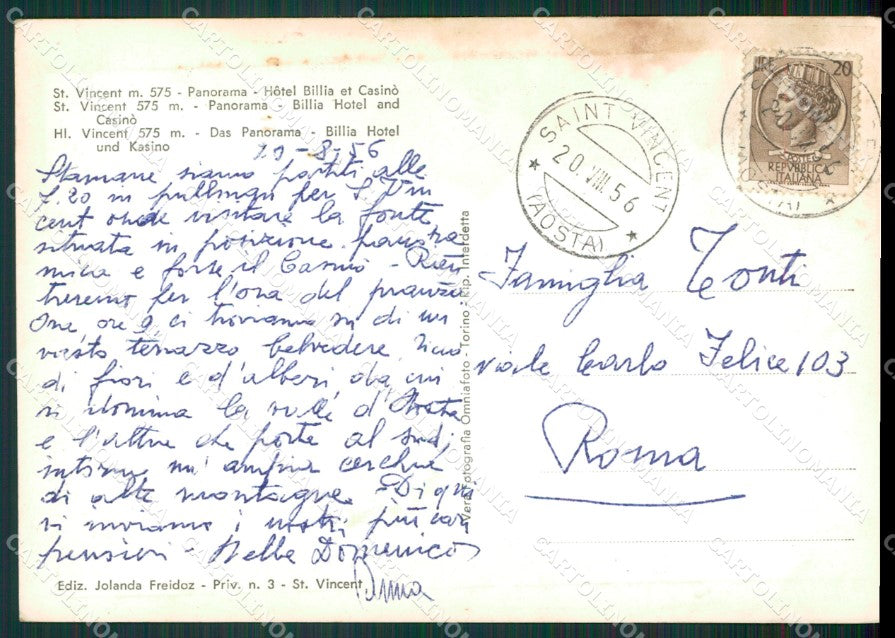 St. Vincent m. 575 - Panorama - Hôtel Billia et Casinò
St. Vincent 575 m. - Panorama - Billia Hotel and
Casinò
Hl. Vincent 575 m. - Das Panorama - Billia Hotel
und Kasino
LIRE 20
POSTE
REPUBBLICA
ITALIANA
SAINT VINCENT
20.VIII.56
(AOSTA)
19-8-56
Stamane siamo partiti alle
7.20 in pullman per S. Vin
cent onde visitare la fonte
situata in posizione panora
mica e forse il Casinò - Rien
treremo per l'ora del pranzo
Ore ore 9 ci troviamo su di un
vasto terrazzo belvedere ricco
di fiori e d'alberi da cui
si domina la valle d'Aosta
e l'altra che porta al sud,
intorno un' ampia cerchia
di alte montagne. Di qui
vi inviamo i nostri più cari
pensieri - Nella Domenico
Anna
Famiglia Conti
viale Carlo Felice 103
Roma
Vera Fotografia Omniafoto - Torino - Rip. Interdetta
Ediz. Jolanda Freidoz - Priv. n. 3 - St. Vincent
CARTOLINOMANIA